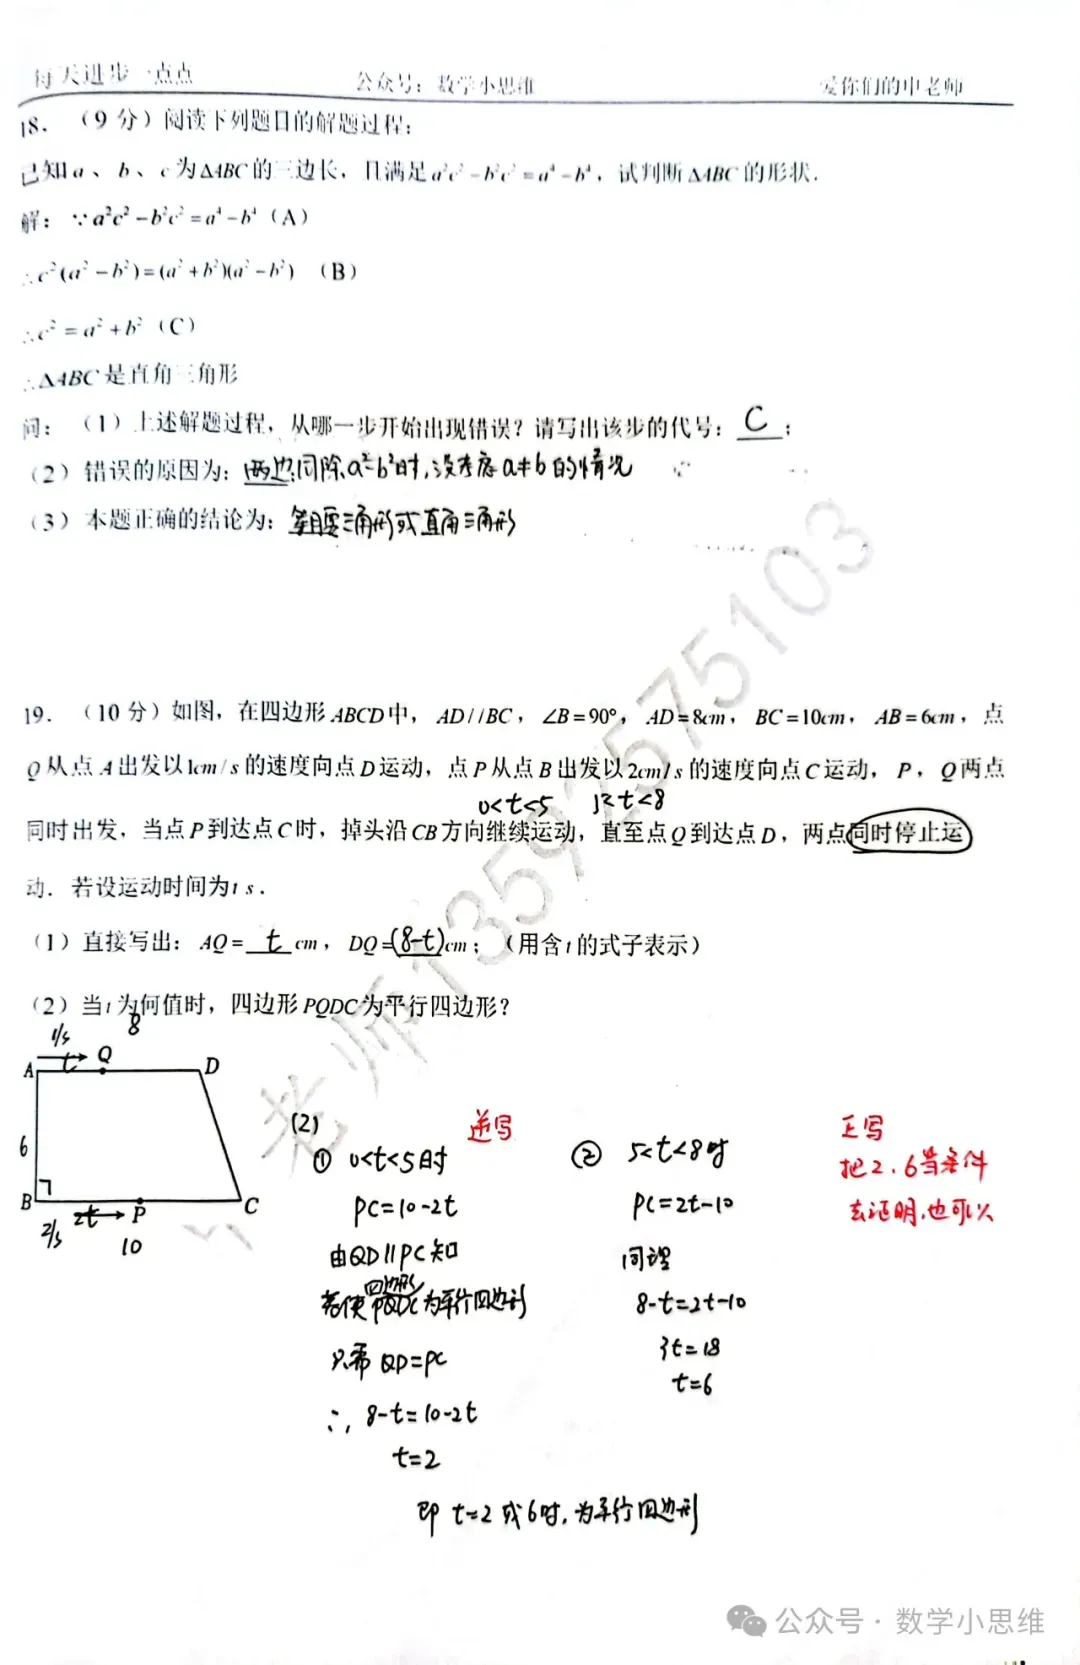 每天进步一点点 公众号：数学小思维 爱你们的申老师
18. （9 分）阅读下列题目的解题过程：
已知a、b、c为△ABC的三边长，且满足a²c²－b²c²＝a⁴－b⁴，试判断△ABC的形状.
解：∵a²c²－b²c²＝a⁴－b⁴（A）
∴c²(a²－b²)＝(a²＋b²)(a²－b²)（B）
∴c²＝a²＋b²（C）
∴△ABC是直角三角形
问：（1）上述解题过程，从哪一步开始出现错误？请写出该步的代号：C；
（2）错误的原因为：两边同除a²-b²时,没考虑a≠b的情况
（3）本题正确的结论为：等腰三角形或直角三角形
19. （10 分）如图，在四边形ABCD中，AD//BC，∠B＝90°，AD＝8cm，BC＝10cm，AB＝6cm，点
Q从点A出发以1cm/s的速度向点D运动，点P从点B出发以2cm/s的速度向点C运动，P，Q两点
0<t<5 5<t<8
同时出发，当点P到达点C时，掉头沿CB方向继续运动，直至点Q到达点D，两点同时停止运
动. 若设运动时间为t s.
（1）直接写出：AQ＝t cm，DQ＝(8-t)cm；（用含t的式子表示）
（2）当t为何值时，四边形PQDC为平行四边形？
8
1/s
t
A Q D
6
B P C
2/s 2t
10
(2)
① 0<t<5时
PC=10-2t
由QD∥PC知
四边形
若使PQDC为平行四边形
只需QD=PC
∴ 8-t=10-2t
t=2
逆写
② 5<t<8时
PC=2t-10
同理
8-t=2t-10
3t=18
t=6
即 t=2或6时,为平行四边形
正写
把2.6当条件
去证明,也可以
老师13592575103
公众号·数学小思维